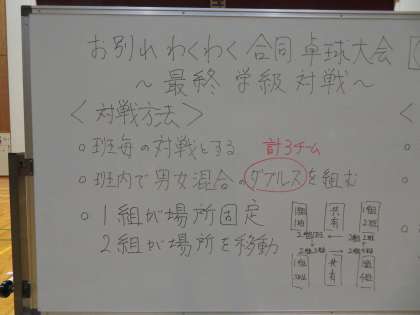 お別れわくわく合同卓球大会
～最終学級対戦～
<対戦方法>
○班毎の対戦とする 計3チーム
○班内で男女混合のダブルスを組む
○1組が場所固定
2組が場所を移動
共有
共有